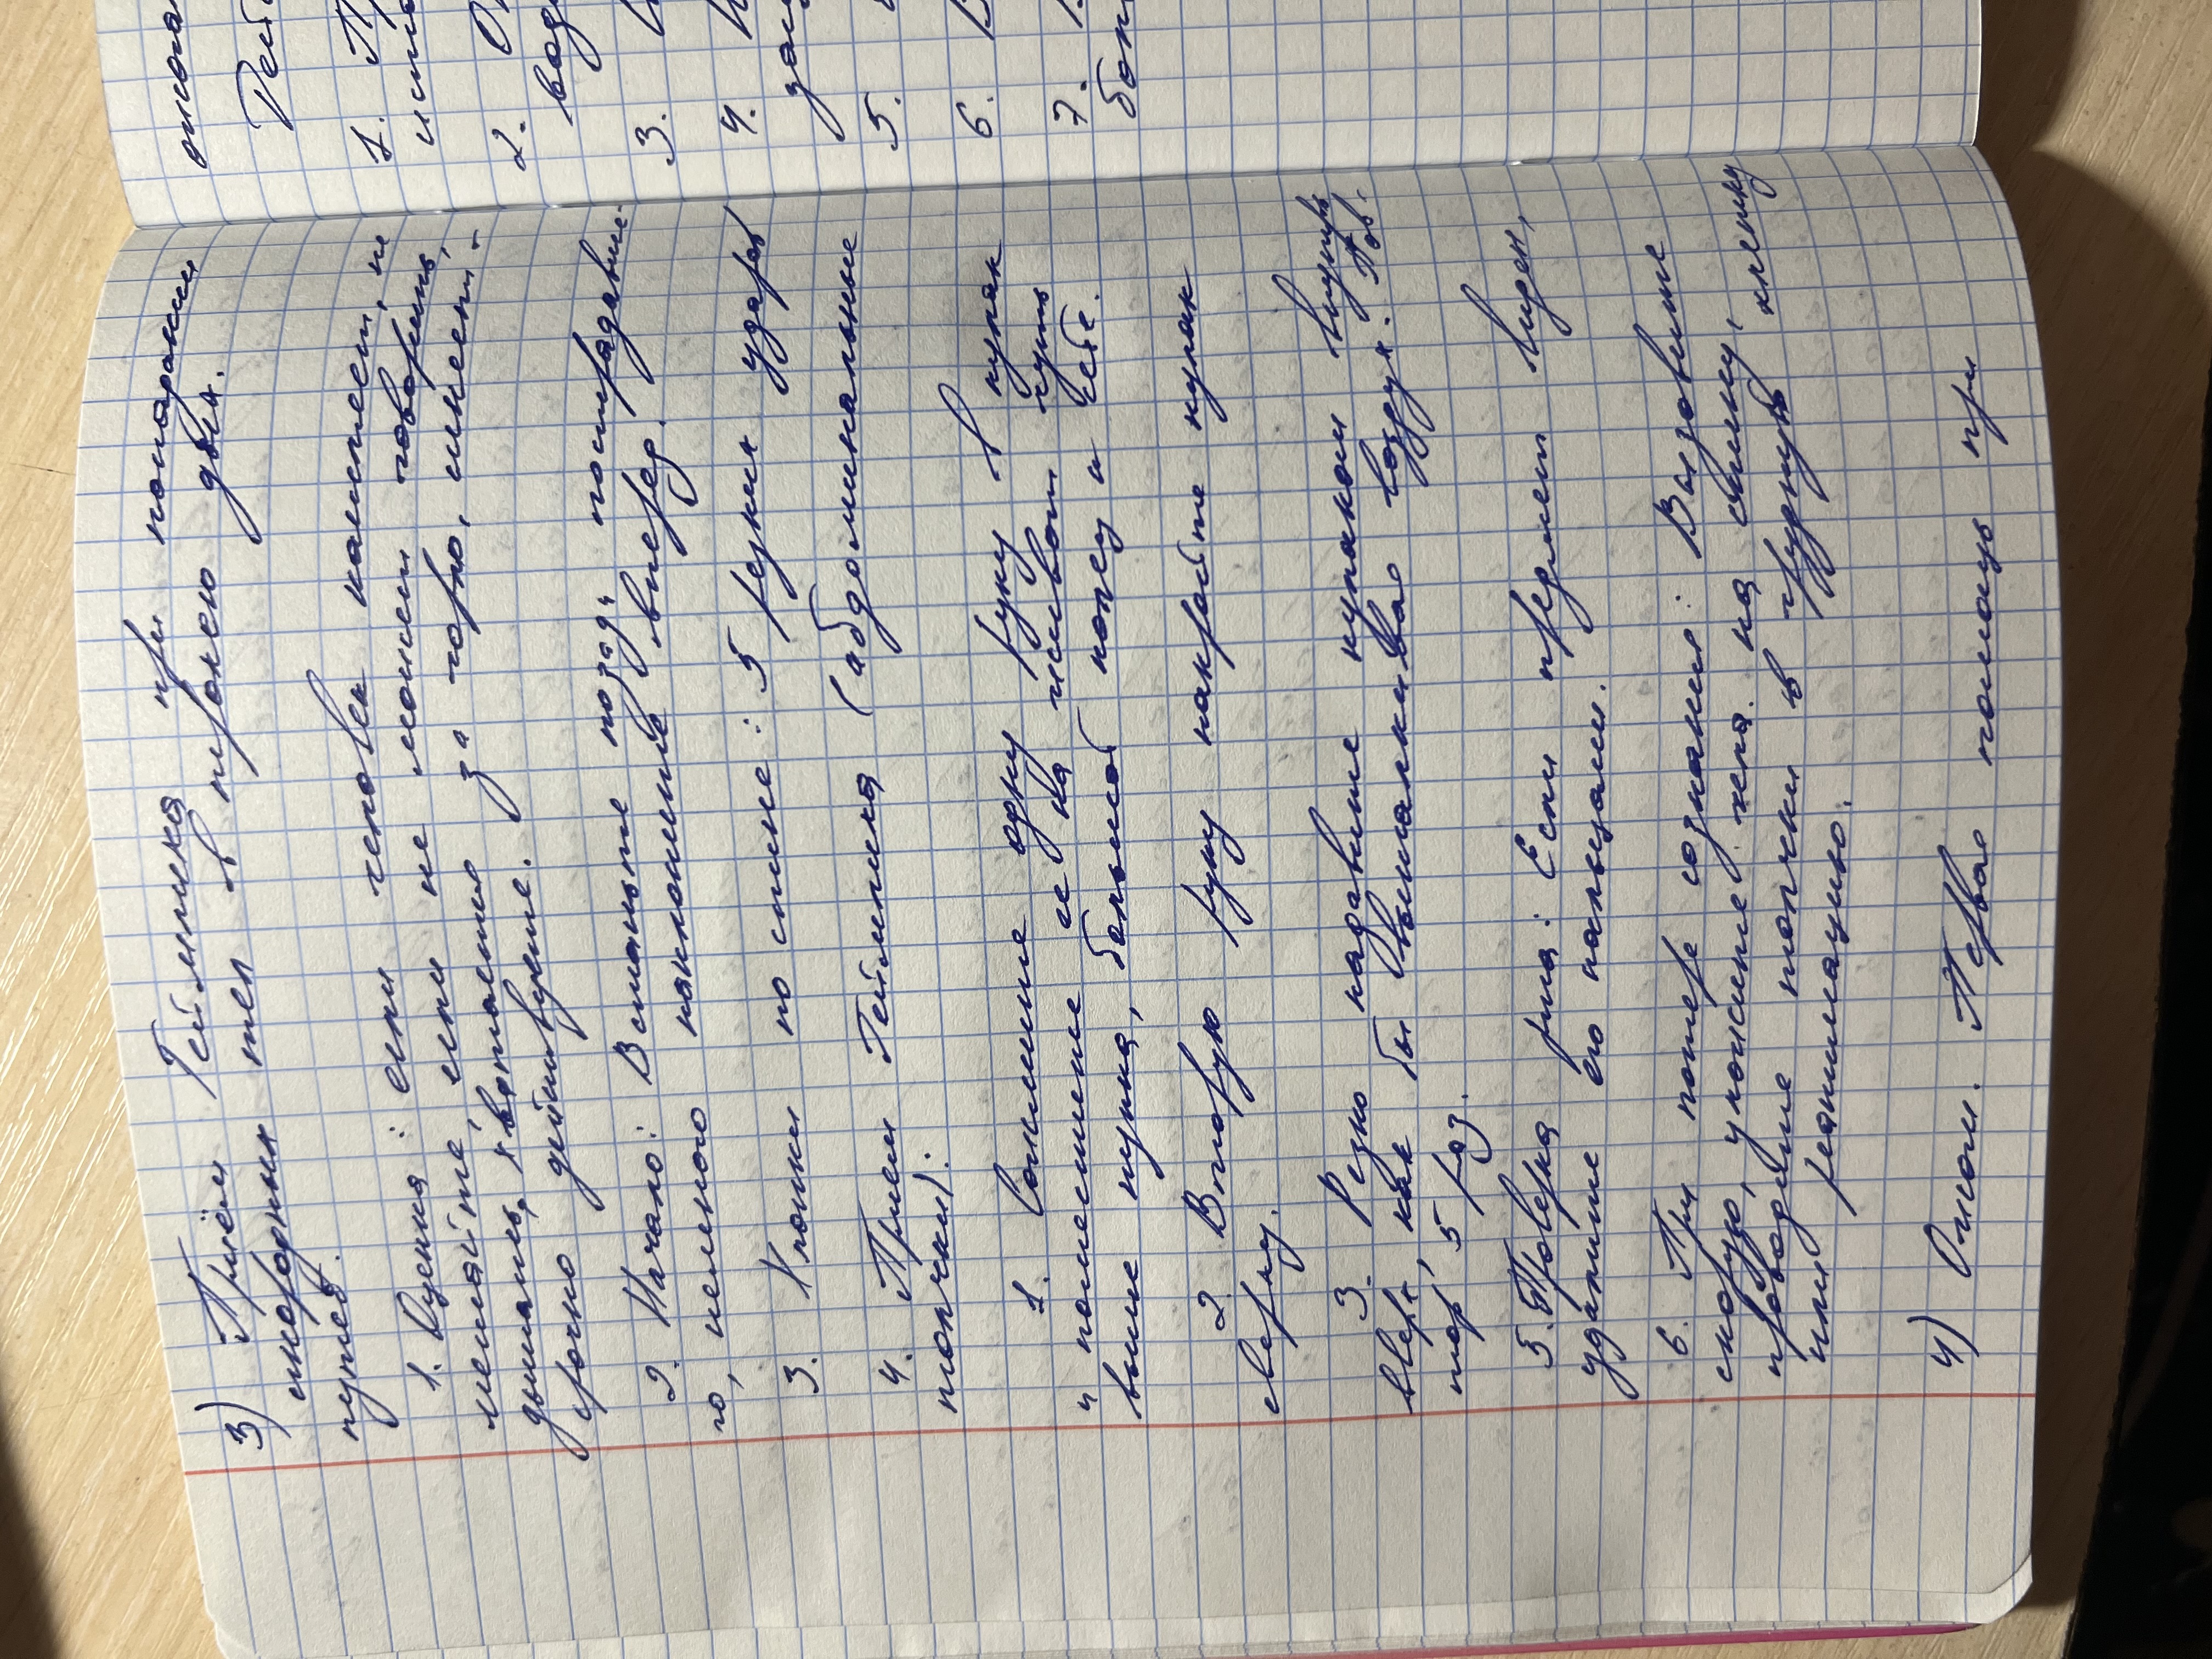 3) Приём Геймлиха при попадании
инородных тел в верхних дых.
путей.
1. Оценка: если человек кашляет, не
мешайте, если не может говорить,
дышать, хватается за горло, синеет -
срочно действуйте.
2. Начало: Встаньте позади пострадавше-
го, немного наклонитесь вперед.
3. Хлопки по спине: 5 резких ударов
4. Прием Геймлиха (абдоминальные
толчки):
1. Сожмите одну руку в кулак
и поместите ее на живот чуть
выше пупка, большой палец к себе.
2. Вторую руку накройте кулак
сверху.
3. Резко надавите кулаком внутрь
вверх, как бы выталкивая воздух. Пов.
тор, 5 раз.
5. Проверка рта: Если предмет виден,
удалите его пальцами.
6. При потере сознания: Вызовите
скорую, уложите на спину,
проводите толчки в грудную клетку
или реанимацию.
4) Ожог. Первая помощь при
ожогах
1.
2.
3.
4.
5.
6.
7.